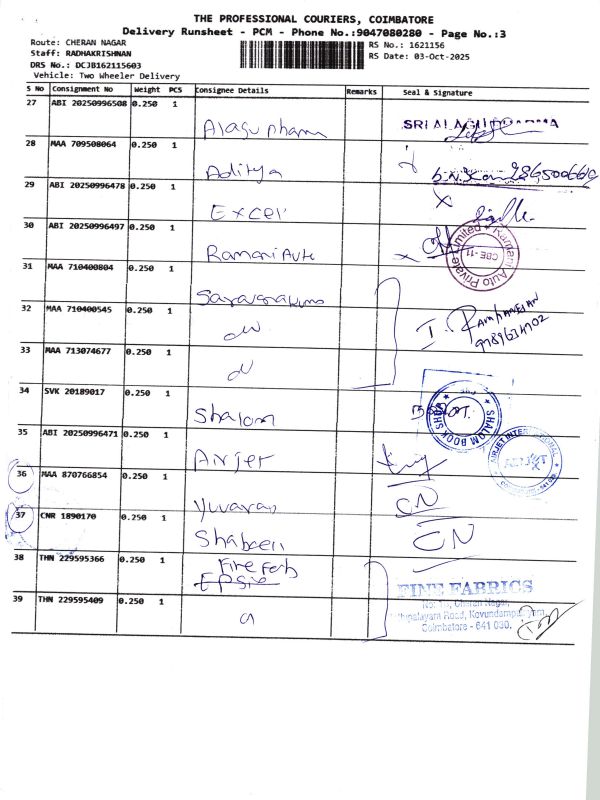 THE PROFESSIONAL COURIERS, COIMBATORE
Delivery Runsheet - PCM - Phone No.:9047080280 - Page No.:3
Route: CHERAN NAGAR
RS No.: 1621156
Staff: RADHAKRISHNAN
RS Date: 03-Oct-2025
DRS No.: DCJB162115603
Vehicle: Two Wheeler Delivery
S No Consignment No Weight PCS Consignee Details Remarks Seal & Signature
27 ABI 20250996508 0.250 1
Alagu pharm
28 MAA 709508064 0.250 1
Aditya
29 ABI 20250996478 0.250 1
Excel
30 ABI 20250996497 0.250 1
Ramani Auto
Ramani Auto Private Limited
CBE-11
31 MAA 710400804 0.250 1
32 MAA 710400545 0.250 1
33 MAA 713074677 0.250 1
34 SVK 20189017 0.250 1
Shalom
SHALOM BOOK SHOP
35 ABI 20250996471 0.250 1
Airjet
AIRJET INTERNATIONAL
36 MAA 870766854 0.250 1
Yuvaraj
CN
37 CNR 1890170 0.250 1
Shabeen
CN
38 THN 229595366 0.250 1
Fire Fab
FINE FABRICS
Cheran Nagar,
Road, Kovundampalayam
Coimbatore - 641 030.
39 THN 229595409 0.250 1